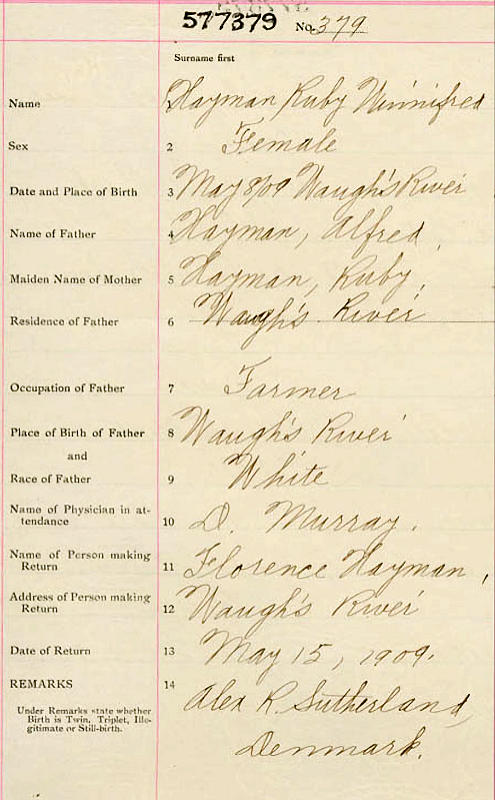 577379 No. 379
Surname first
Name 1 Hayman Ruby Winnifred
Sex 2 Female
Date and Place of Birth 3 May 8/09 Waugh's River
Name of Father 4 Hayman, Alfred,
Maiden Name of Mother 5 Hayman, Ruby,
Residence of Father 6 Waugh's River
Occupation of Father 7 Farmer
Place of Birth of Father 8 Waugh's River
and
Race of Father 9 White
Name of Physician in at-
tendance 10 D. Murray.
Name of Person making
Return 11 Florence Hayman,
Address of Person making
Return 12 Waugh's River
Date of Return 13 May 15, 1909.
REMARKS 14 Alex R. Sutherland,
Under Remarks state whether
Birth is Twin, Triplet, Ille-
gitimate or Still-birth.
Denmark.